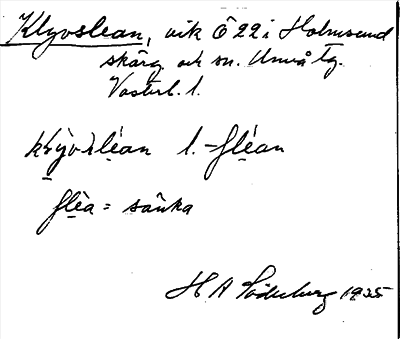 Klyvslean, vik Ö 22 i Holmsund
skärg. och sn. Umeå tg.
Vasterb. l.
klỳvsléan l. -fléan
fléa = sänka
H A Söderberg 1935